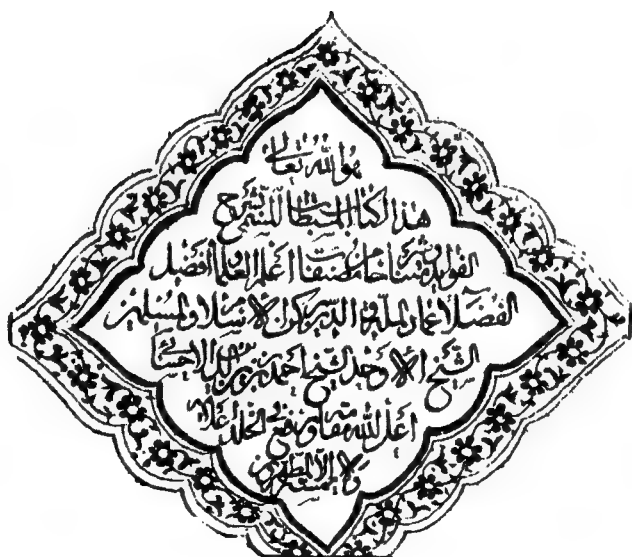 هو الله تعالى
هذا كتاب المستطاب المسمى بشرح
الفوايد من مصنفات اعلم العلماء و افضل
الفضلاء عماد الملة و الدين ركن الاسلام و المسلمين
الشيخ الاوحد الشيخ احمد بن زين الدين الاحسائي
اعلى الله مقامه و رفع في الخلد اعلامه
لا يمسه الا المطهرون